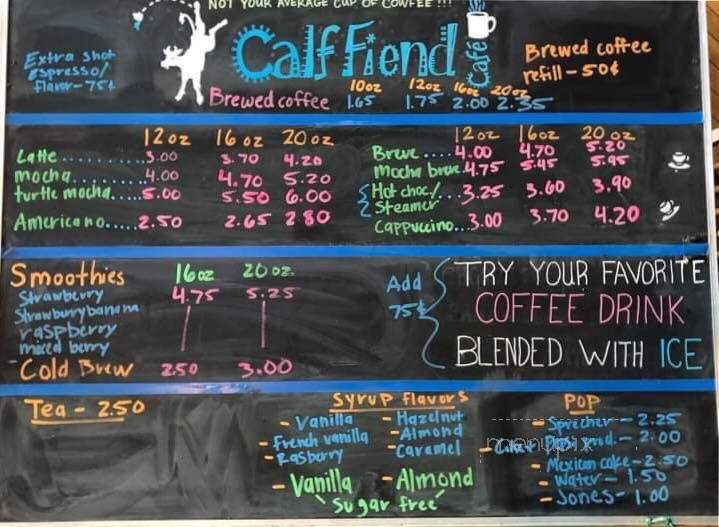 NOT YOUR AVERAGE CUP OF COWFEE !!!
Calf Fiend Café
Extra shot
espresso/
flavor - 75¢
Brewed coffee
refill - 50¢
10oz 12oz 16oz 20oz
Brewed coffee 1.65 1.75 2.00 2.35
12oz 16oz 20oz
Latte.......... 3.00 3.70 4.20
mocha.......... 4.00 4.70 5.20
turtle mocha..... 5.00 5.50 6.00
Americano..... 2.50 2.65 2.80
12oz 16oz 20oz
Breve .... 4.00 4.70 5.20
Mocha breve. 4.75 5.45 5.95
Hot choc./... 3.25 3.60 3.90
Steamer
Cappuccino... 3.00 3.70 4.20
Smoothies 16oz 20oz.
Strawberry 4.75 5.25
Strawburybanana
raspberry
mixed berry
Cold Brew 2.50 3.00
Add
75¢
TRY YOUR FAVORITE
COFFEE DRINK
BLENDED WITH ICE
Tea - 2.50
Syrup flavors
- Vanilla - Hazelnut
- French vanilla - Almond
- Rasberry - Caramel
- Vanilla - Almond
"Sugar free"
POP
- Sprecher - 2.25
prod. - 2.00
- Mexican coke - 2.50
- Water - 1.50
- Jones - 1.00
menupix